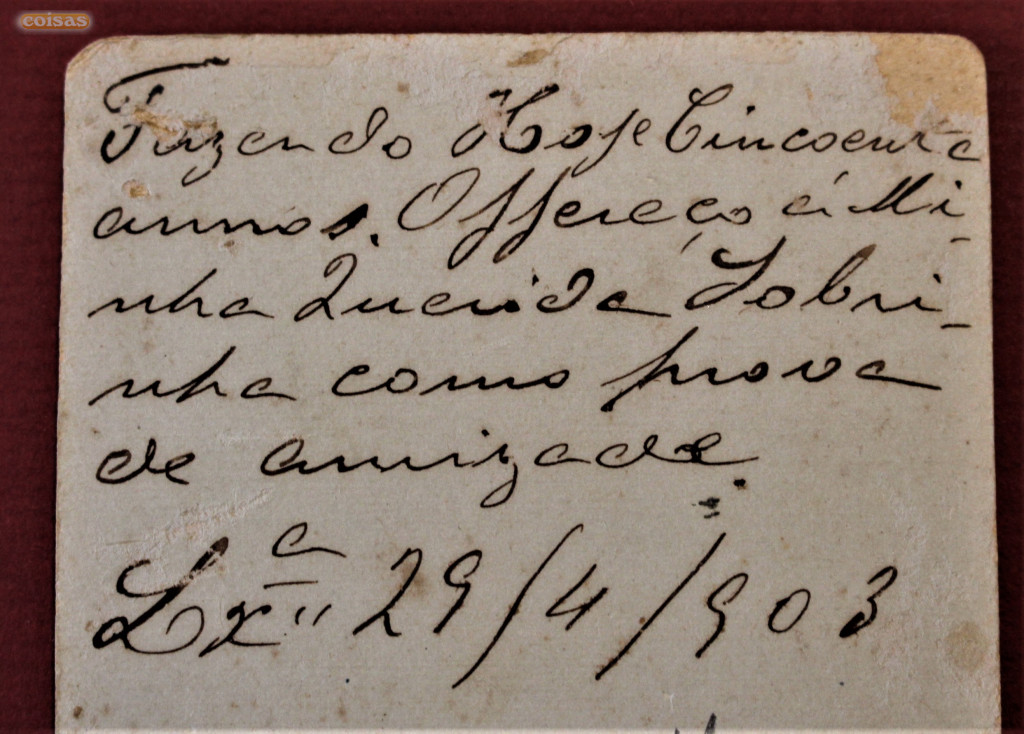 coisas
Fazendo Hoje Cincoenta
annos. Offereço á Mi-
nha Querida Sobri-
nha como prova
de amizade
Lxª 29/4/903